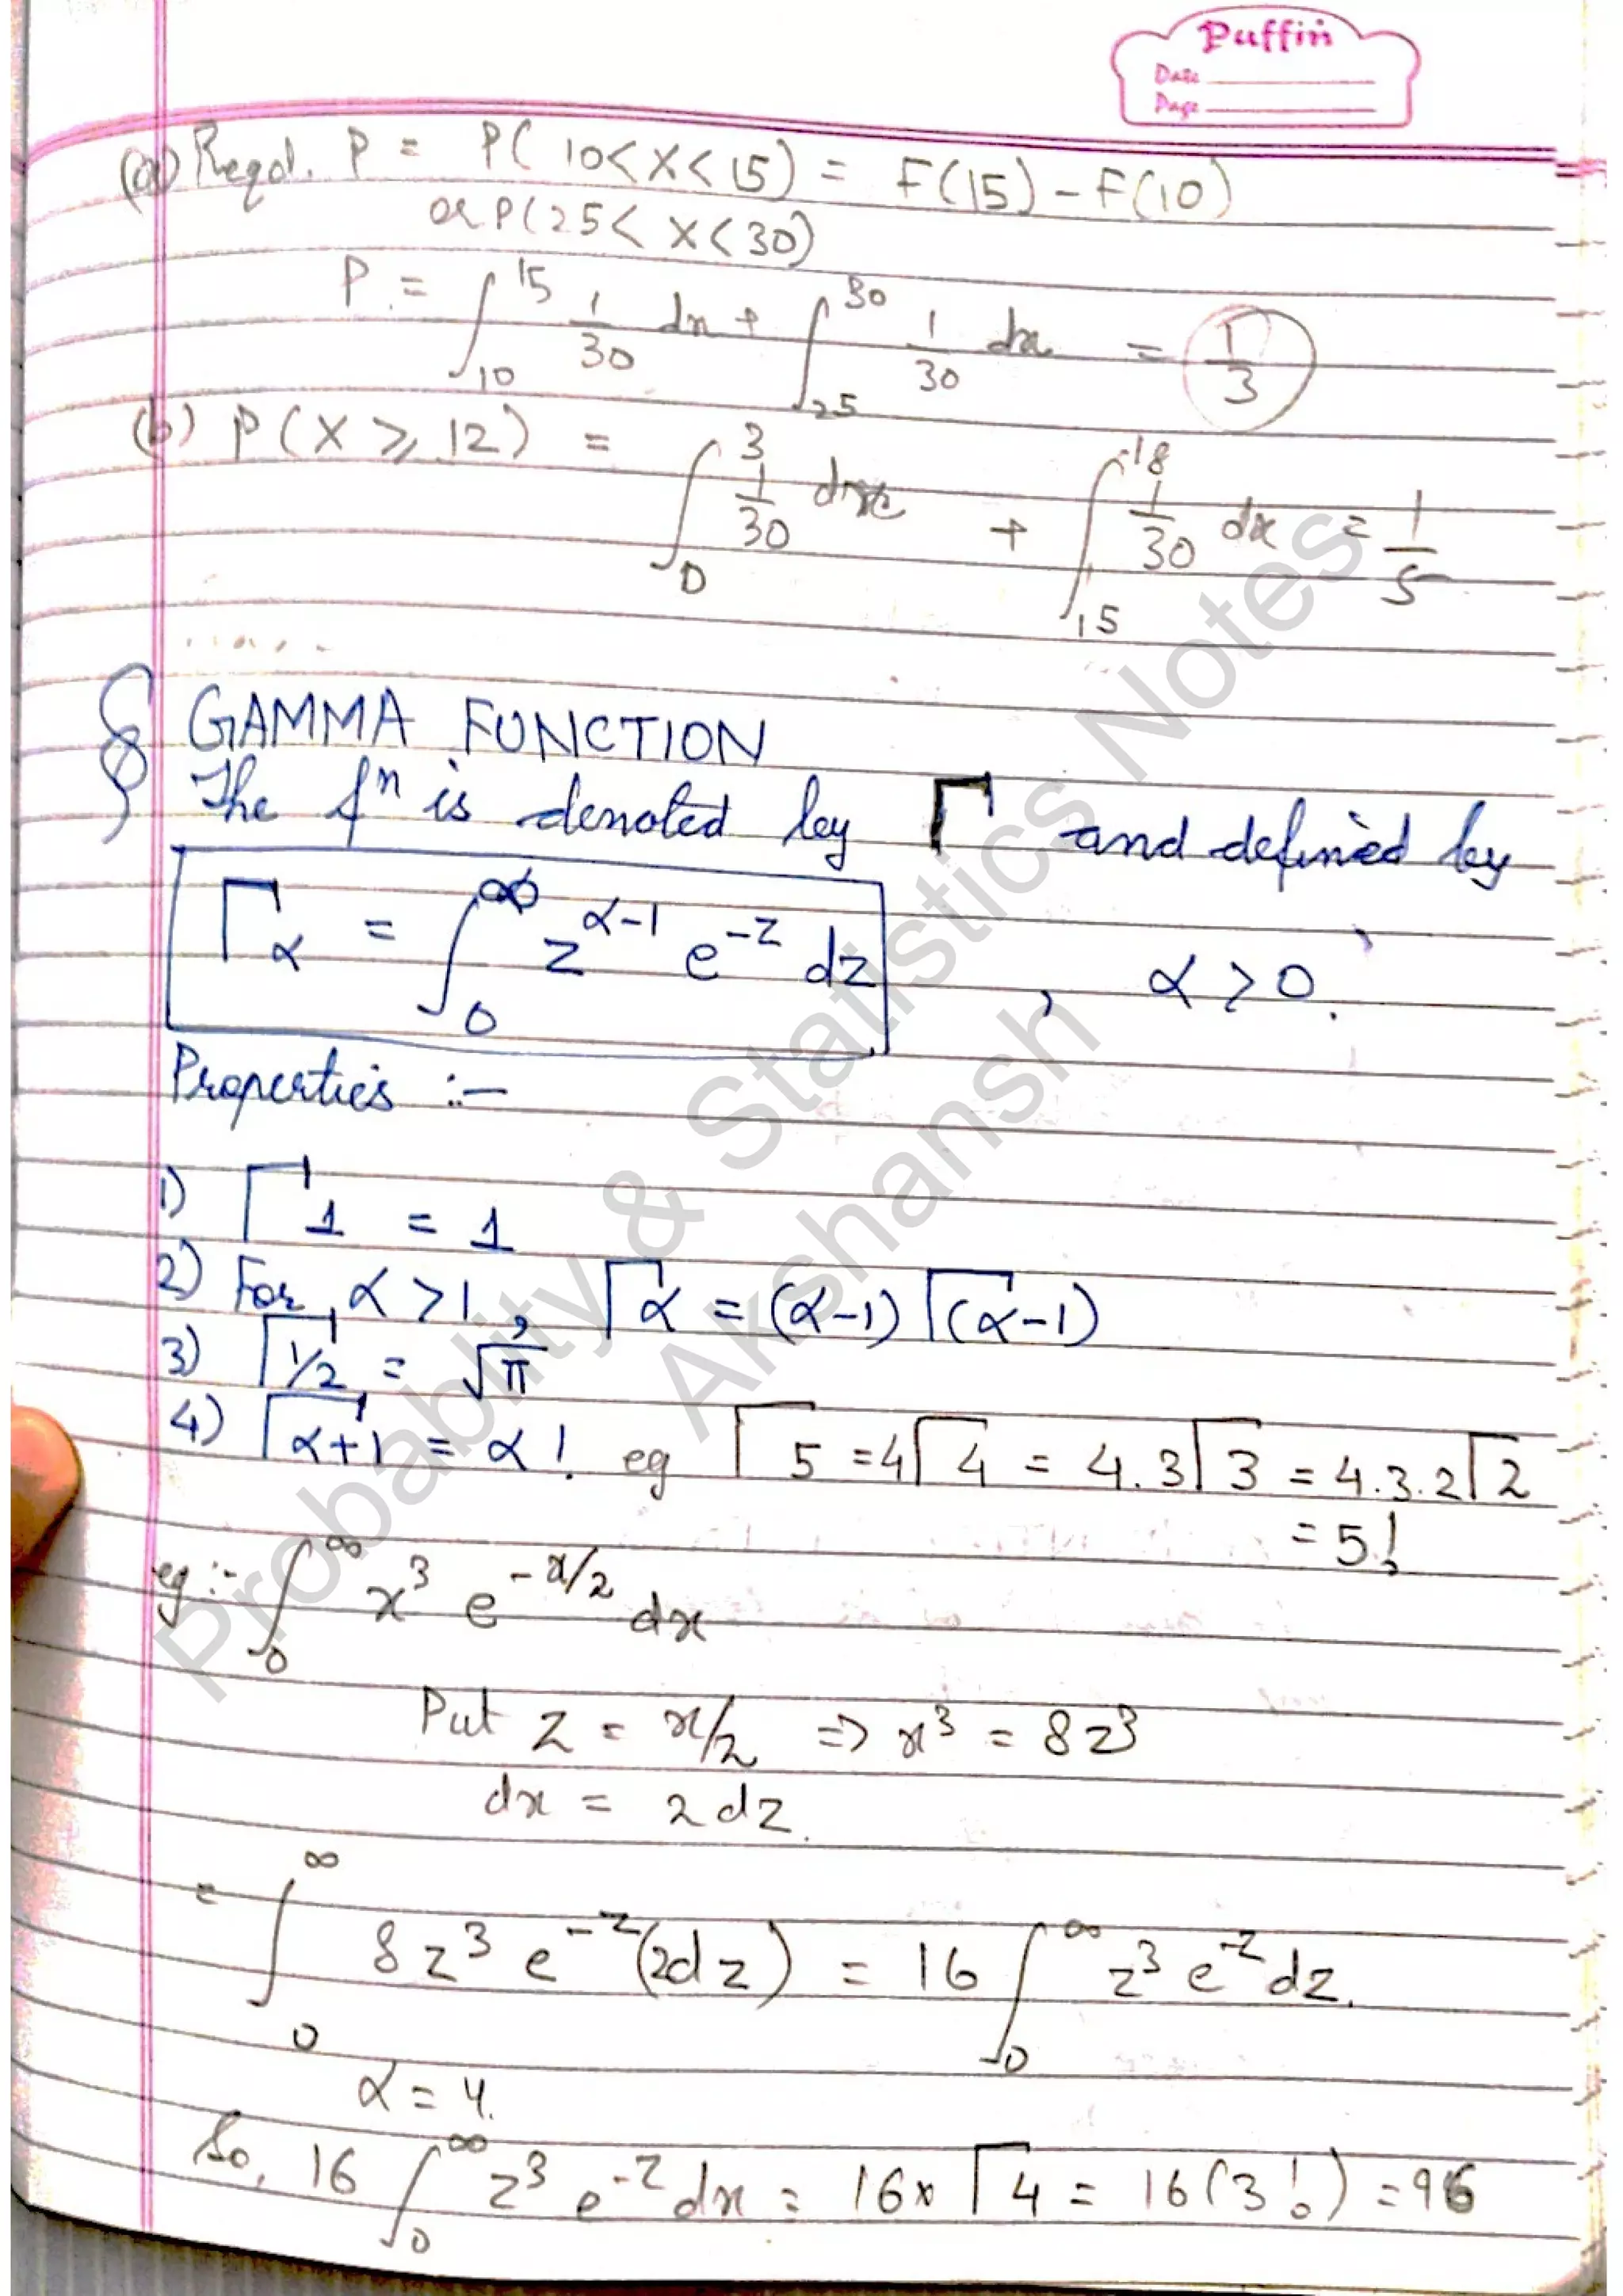 Puffin
Date
Page
(a) Reqd. P = P( 10<X<15) = F(15) - F(10)
or P(25< X<30)
P = ∫₁₀¹⁵ 1/30 dx + ∫₂₅³⁰ 1/30 dx = 1/3
(b) P(X ⩾ 12) = ∫₀³ 1/30 dx + ∫₁₅¹⁸ 1/30 dx = 1/5
§ GAMMA FUNCTION
The fⁿ is denoted by Γ and defined by
Γα = ∫₀^∞ z^(α-1) e^(-z) dz , α > 0.
Properties :-
1) Γ1 = 1
2) For α > 1, Γα = (α-1) Γ(α-1)
3) Γ1/2 = √π
4) Γα+1 = α! eg Γ5 = 4Γ4 = 4.3Γ3 = 4.3.2Γ2
= 5!
eg :- ∫₀^∞ x³ e^(-x/2) dx
Put z = x/2 => x³ = 8z³
dx = 2dz.
= ∫₀^∞ 8z³ e^(-z) (2dz) = 16 ∫₀^∞ z³ e^(-z) dz.
α = 4.
So, 16 ∫₀^∞ z³ e^(-z) dx = 16 × Γ4 = 16(3!) = 96
Probablity & Statistics Notes
Akshansh